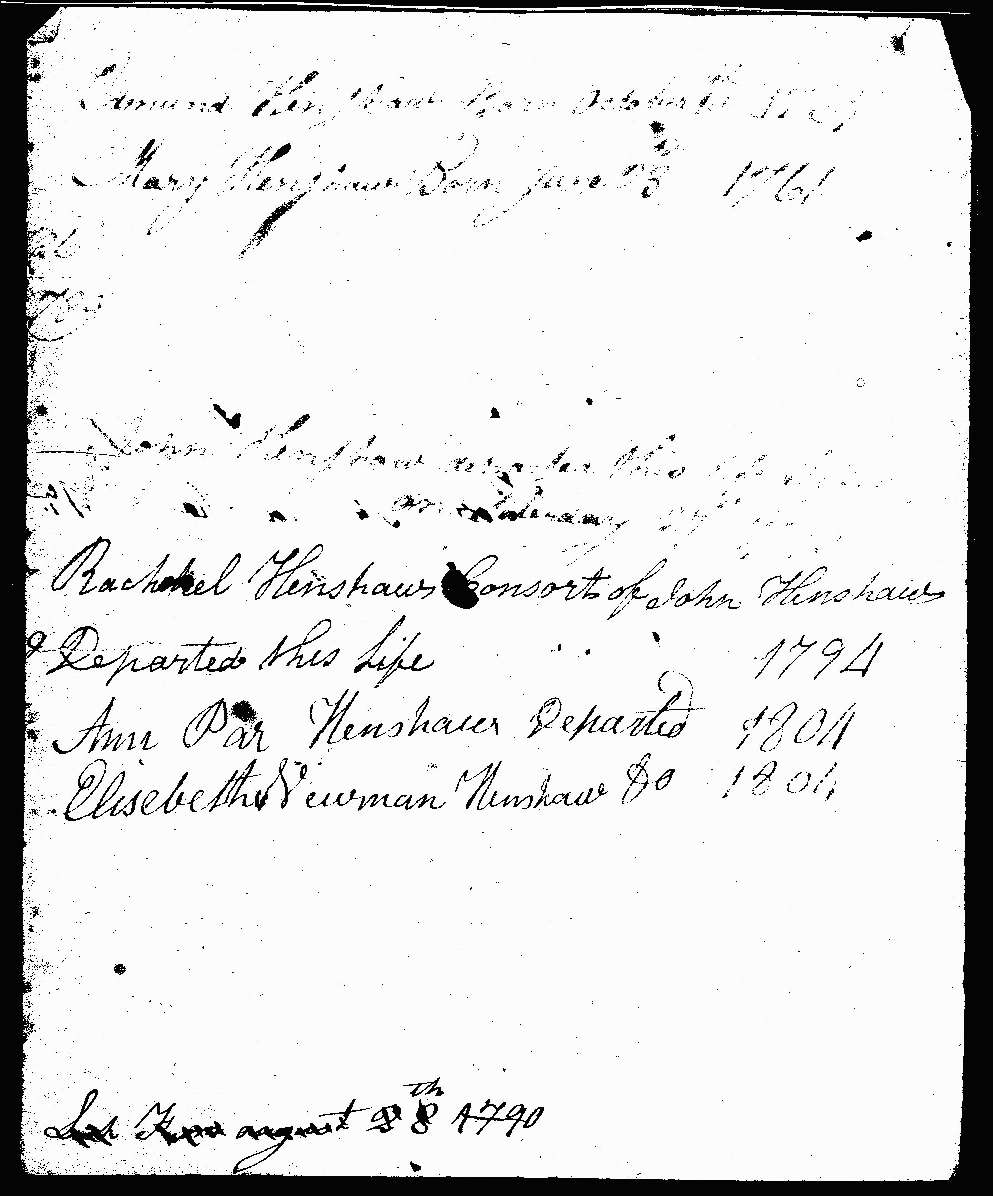 Edmund Henshaw Born October
Mary Henshaw Born June 23 1764
John Henshaw departed this life
on Saturday 27th
Rachhel Henshaw Consort of John Henshaw
Departed this Life 1794
Ann Par Henshaw Departed 1804
Elisebeth Newman Henshaw Do 1804
august 28th 1790